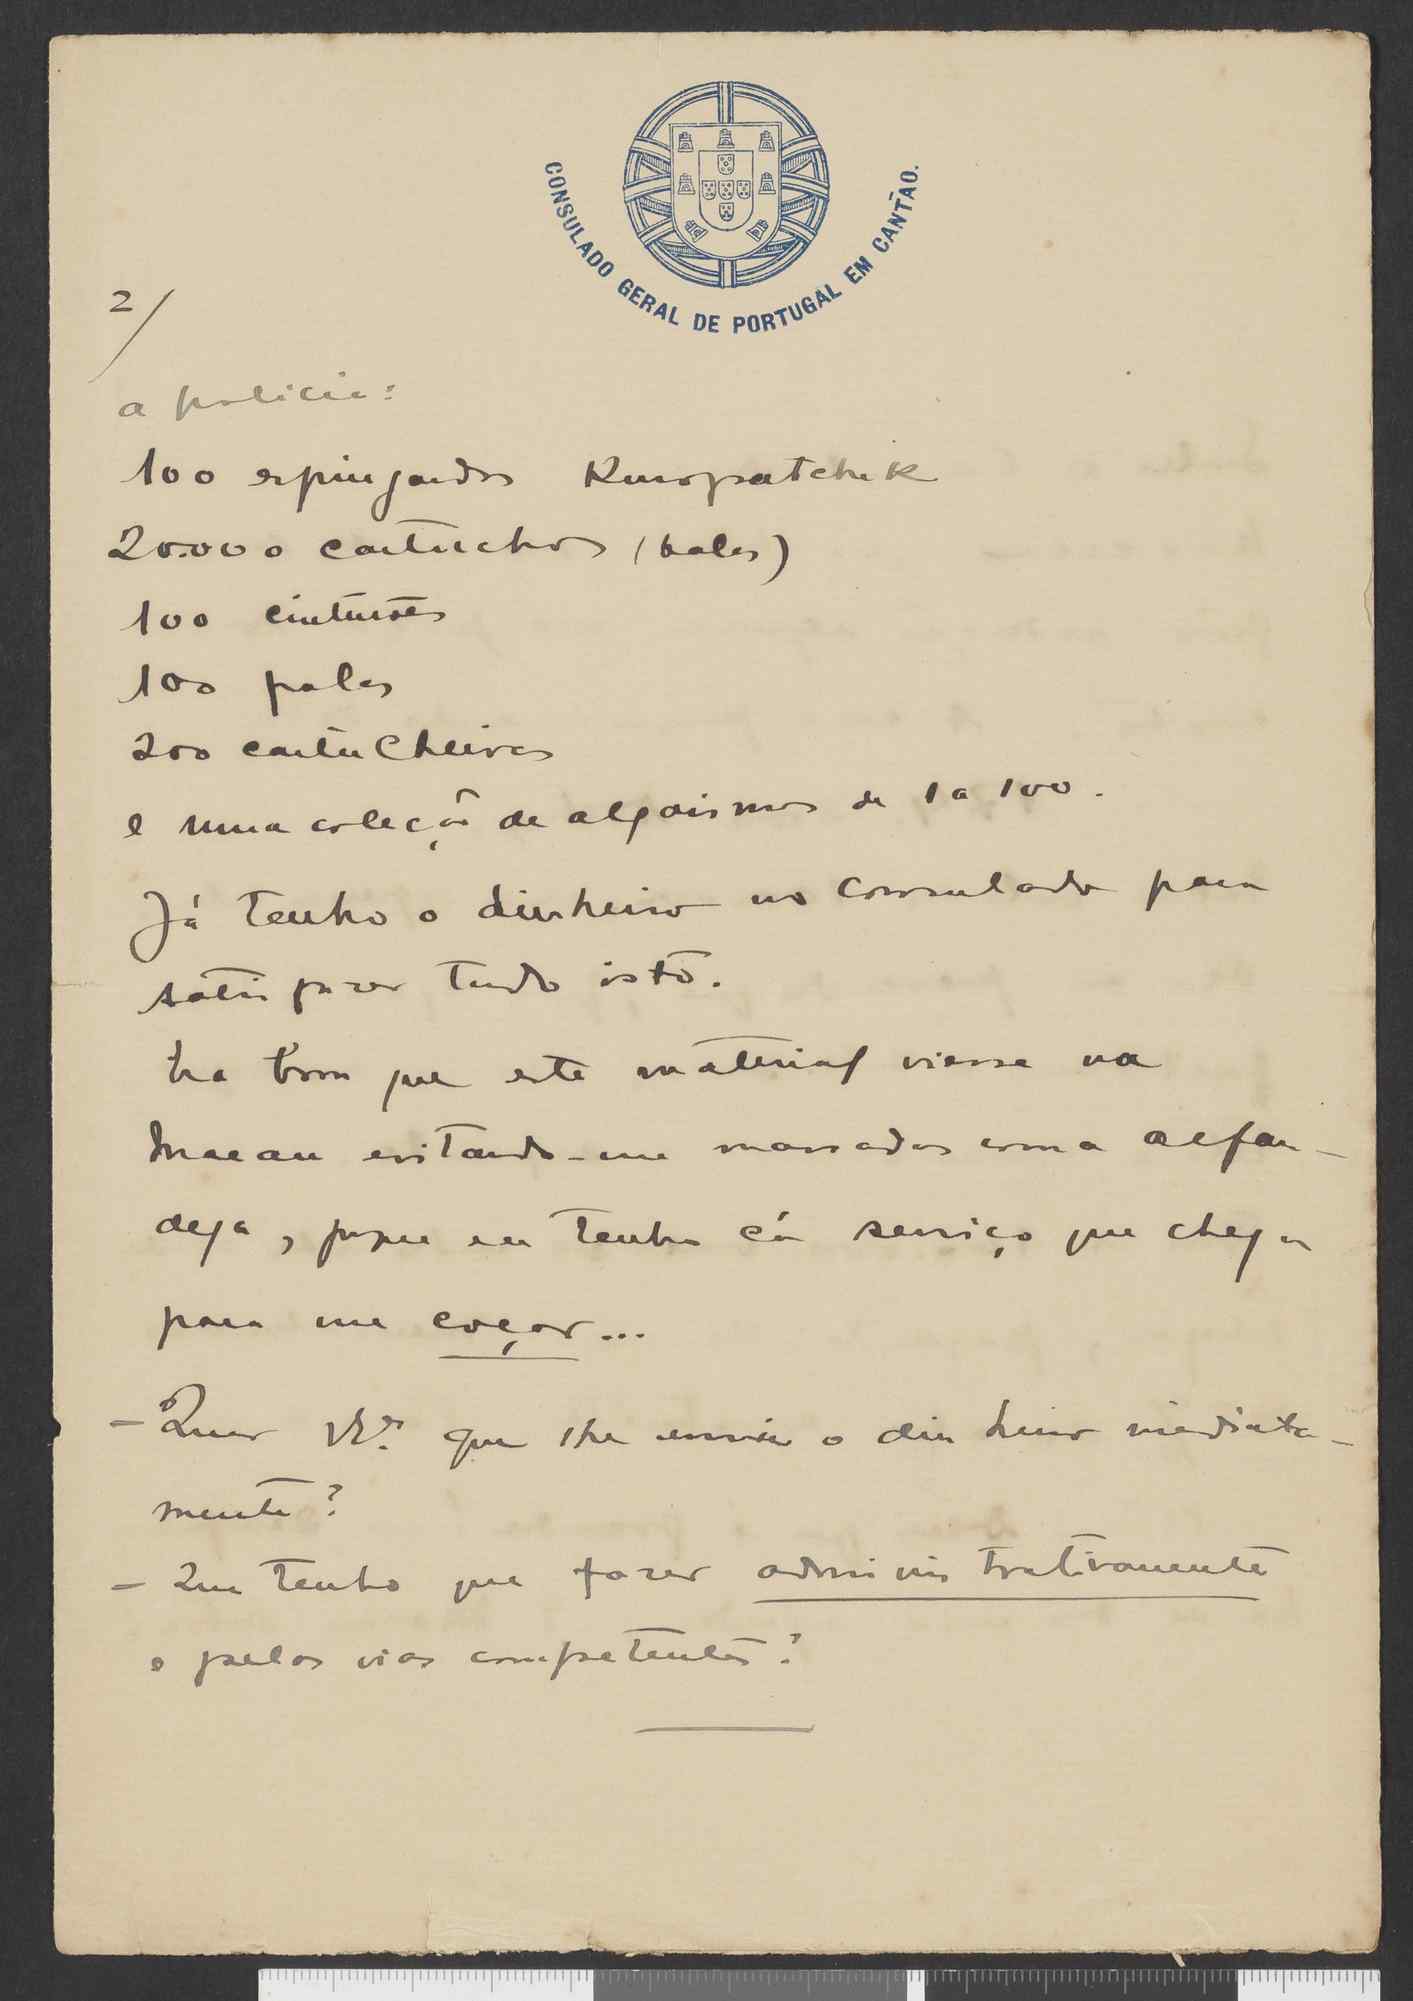 CONSULADO GERAL DE PORTUGAL EM CANTÃO.
2/
a policia:
100 espingardas Kuropatchik
20.000 cartuchos (balas)
100 cinturões
100 palas
200 cartucheiras
e uma coleção de algarismos de 1 a 100.
Já tenho o dinheiro no consulado para
satisfazer tudo isto.
bom que este material viesse na
Macau evitando-me massadas com a alfan-
dega, porque eu tenho cá serviço que chega
para me coçar...
- Quer VEª. que lhe envie o dinheiro imediata-
mente?
- Que tenho que fazer administrativamente
e pelas vias competentes?